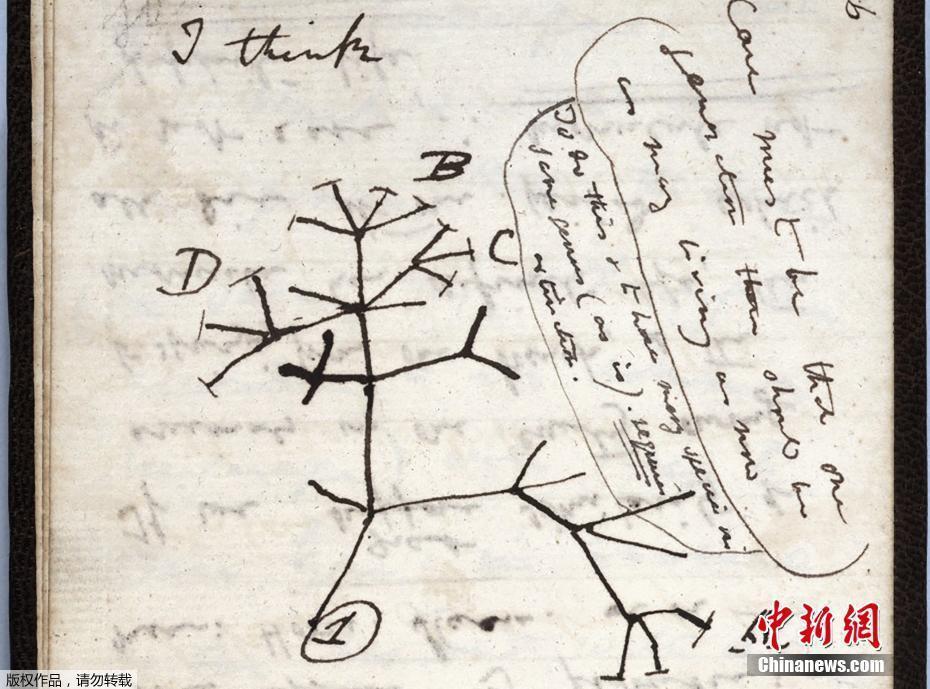 I think
Case must be that one
generation then should be
as many living as now
To do this & to have many species in
same genus (as is) requires
extinction.
B
C
D
1
中新網
Chinanews.com
版权作品，请勿转载